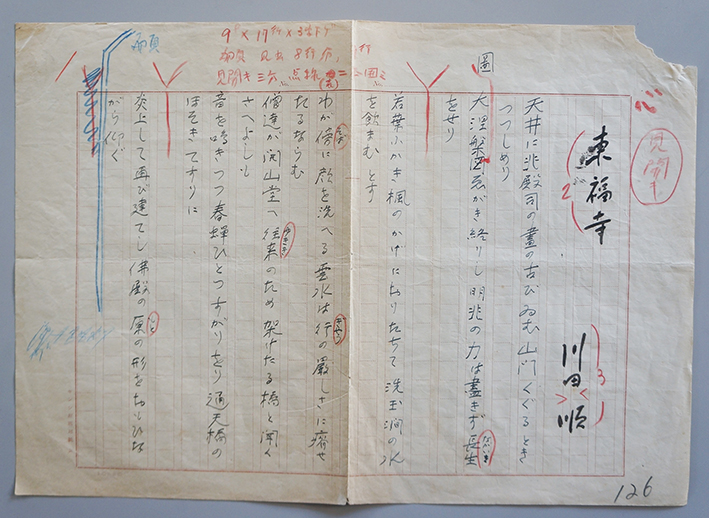 東福寺
川田順
天井に兆殿司の畫の古びゐむ山門くぐるとき
つつしめり
大涅槃図ゑがき終りし明兆の力は盡きず長生
をせり
若葉ふかき楓のかげにおりたちて洗玉澗の水
を飲まむとす
わが傍に顔を洗へる雲水は行の厳しさに瘠せ
たるならむ
僧達が開山堂へ往来のため架けたる橋と聞く
さへよしも
音を鳴きつつ春蝉ひとつすがりをり通天橋の
ほそきてすりに
炎上して再び建てし佛殿の原の形をおもひな
がら仰ぐ
見開き
9
126